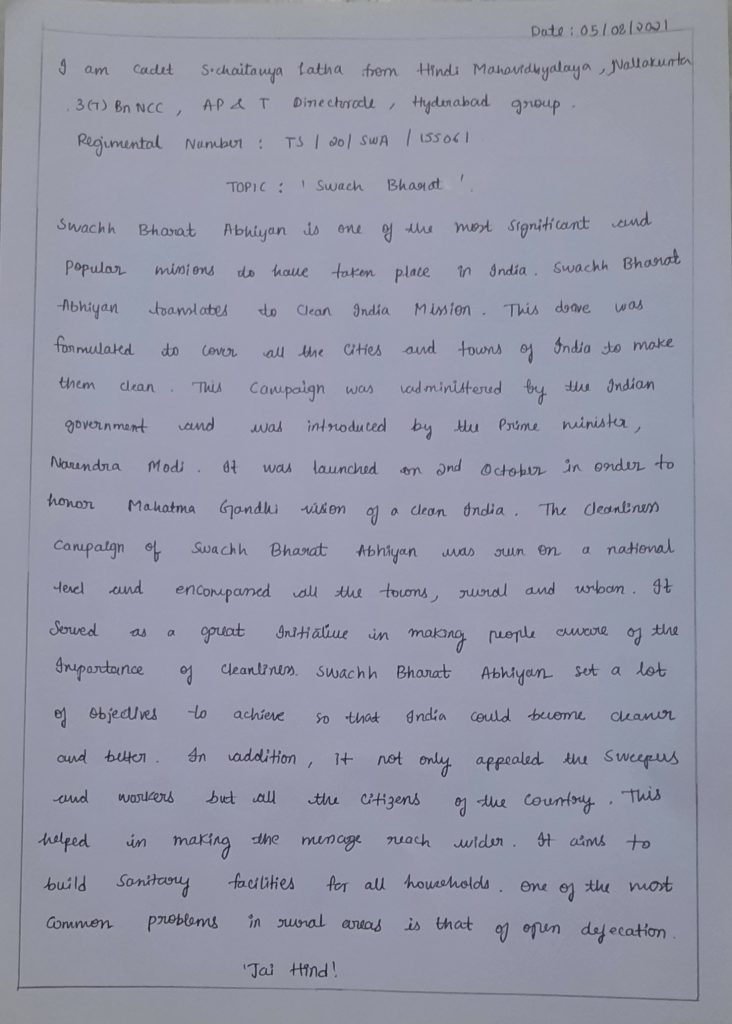 Date : 05/08/2021
I am Cadet S.chaitanya Latha from Hindi Mahavidhyalaya, Nallakunta
.3(T) Bn NCC, AP & T Directorade, Hyderabad group.
Regimental Number : TS / 20/ SWA / 155061
TOPIC : ' Swach Bharat '.
Swachh Bharat Abhiyan is one of the most significant and
Popular missions do have taken place in India. Swachh Bharat
Abhiyan translates to Clean India Mission. This drave was
formulated do cover all the cities and towns of India to make
them clean. This Campaign was administered by the Indian
government and was introduced by the Prime minister,
Narendra Modi. It was launched on 2nd October in order to
honor Mahatma Gandhi vision of a clean India. The Cleanliness
Campaign of Swachh Bharat Abhiyan was run on a national
level and encompassed all the towns, rural and urban. It
Served as a great Initiative in making people aware of the
Importance of cleanliness. Swachh Bharat Abhiyan set a lot
of objectives to achieve so that India could become cleaner
and better. In addition, it not only appealed the Sweepers
and workers but all the citizens of the country. This
helped in making the message reach wider. It aims to
build Sanitary facilities for all households. One of the most
Common problems in rural areas is that of open defecation.
'Jai Hind!